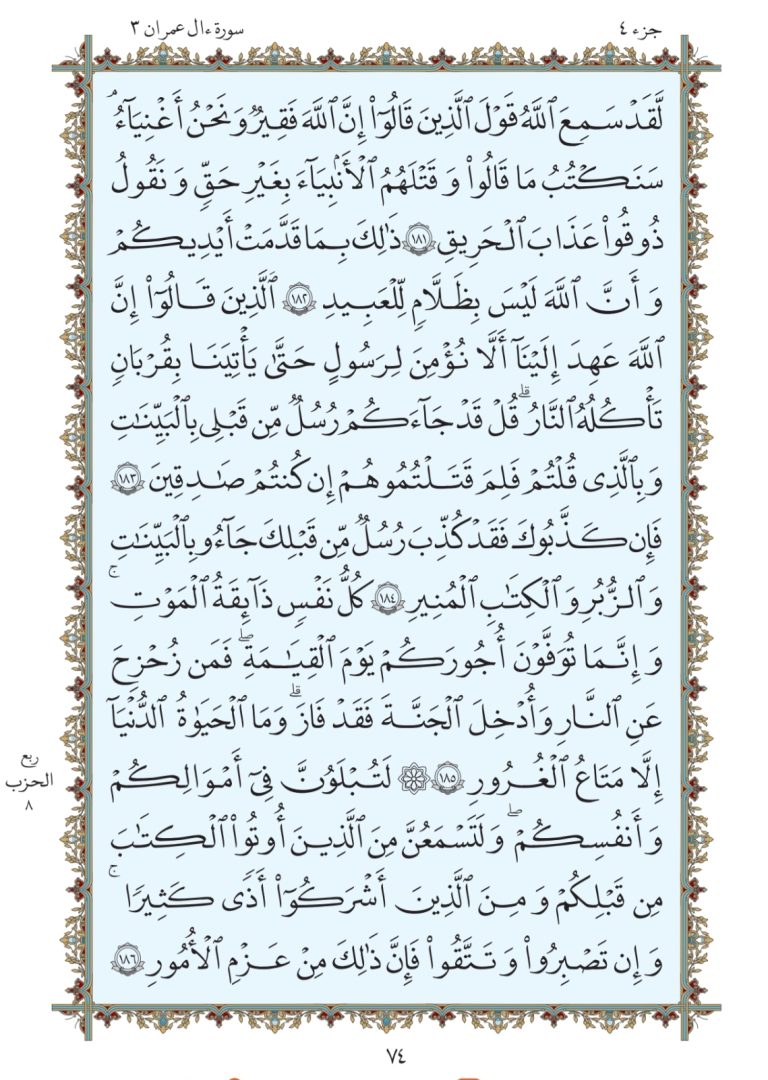 جزء ٤
سورة ءال عمران ٣
لَّقَدْ سَمِعَ ٱللَّهُ قَوْلَ ٱلَّذِينَ قَالُوٓا۟ إِنَّ ٱللَّهَ فَقِيرٌ وَنَحْنُ أَغْنِيَآءُ ۘ
سَنَكْتُبُ مَا قَالُوا۟ وَقَتْلَهُمُ ٱلْأَنۢبِيَآءَ بِغَيْرِ حَقٍّ وَنَقُولُ
ذُوقُوا۟ عَذَابَ ٱلْحَرِيقِ ١٨١ ذَٰلِكَ بِمَا قَدَّمَتْ أَيْدِيكُمْ
وَأَنَّ ٱللَّهَ لَيْسَ بِظَلَّامٍ لِّلْعَبِيدِ ١٨٢ ٱلَّذِينَ قَالُوٓا۟ إِنَّ
ٱللَّهَ عَهِدَ إِلَيْنَآ أَلَّا نُؤْمِنَ لِرَسُولٍ حَتَّىٰ يَأْتِيَنَا بِقُرْبَانٍ
تَأْكُلُهُ ٱلنَّارُ ۗ قُلْ قَدْ جَآءَكُمْ رُسُلٌ مِّن قَبْلِى بِٱلْبَيِّنَـٰتِ
وَبِٱلَّذِى قُلْتُمْ فَلِمَ قَتَلْتُمُوهُمْ إِن كُنتُمْ صَـٰدِقِينَ ١٨٣
فَإِن كَذَّبُوكَ فَقَدْ كُذِّبَ رُسُلٌ مِّن قَبْلِكَ جَآءُو بِٱلْبَيِّنَـٰتِ
وَٱلزُّبُرِ وَٱلْكِتَـٰبِ ٱلْمُنِيرِ ١٨٤ كُلُّ نَفْسٍ ذَآئِقَةُ ٱلْمَوْتِ ۗ
وَإِنَّمَا تُوَفَّوْنَ أُجُورَكُمْ يَوْمَ ٱلْقِيَـٰمَةِ ۖ فَمَن زُحْزِحَ
عَنِ ٱلنَّارِ وَأُدْخِلَ ٱلْجَنَّةَ فَقَدْ فَازَ ۗ وَمَا ٱلْحَيَوٰةُ ٱلدُّنْيَآ
إِلَّا مَتَـٰعُ ٱلْغُرُورِ ١٨٥ ۞ لَتُبْلَوُنَّ فِىٓ أَمْوَٰلِكُمْ
ربع
الحزب
٨
وَأَنفُسِكُمْ ۖ وَلَتَسْمَعُنَّ مِنَ ٱلَّذِينَ أُوتُوا۟ ٱلْكِتَـٰبَ
مِن قَبْلِكُمْ وَمِنَ ٱلَّذِينَ أَشْرَكُوٓا۟ أَذًى كَثِيرًا ۚ
وَإِن تَصْبِرُوا۟ وَتَتَّقُوا۟ فَإِنَّ ذَٰلِكَ مِنْ عَزْمِ ٱلْأُمُورِ ١٨٦
٧٤